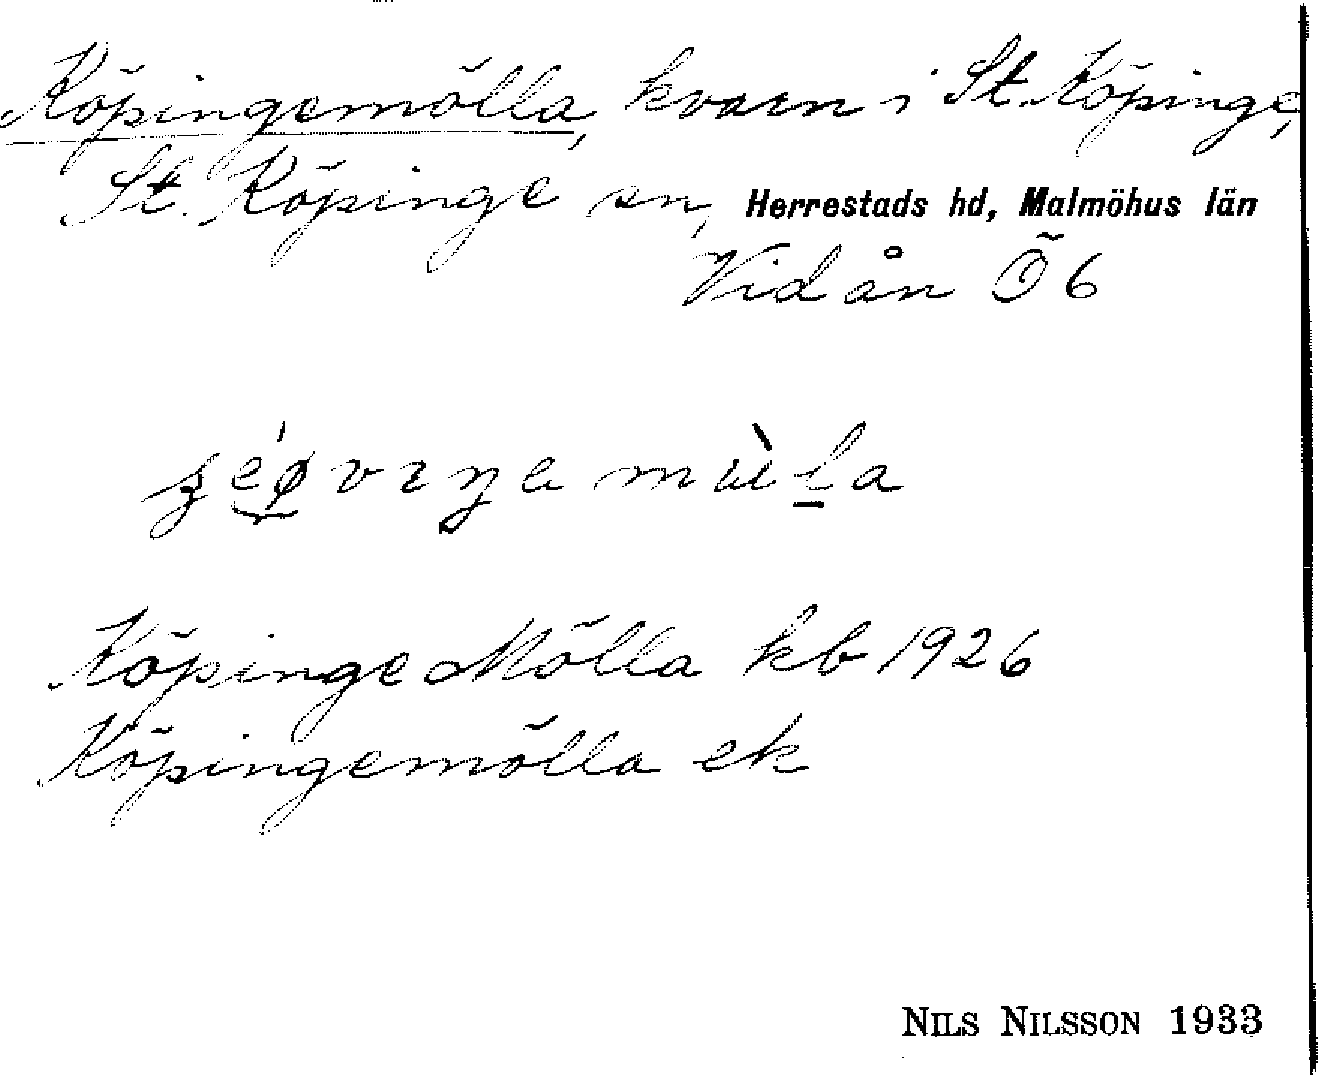 Köpingemölla, kvarn i St. Köpinge,
St. Köpinge sn, Herrestads hd, Malmöhus län
Vid ån Ö6
Köpinge Mölla kb 1926
Köpingemölla ek
NILS NILSSON 1933